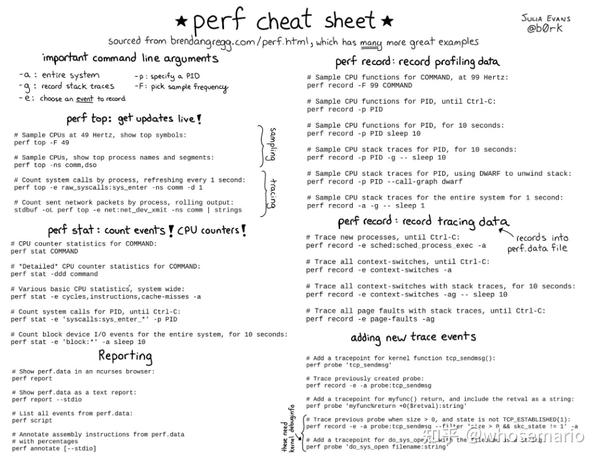 ★perf cheat sheet★
JULIA EVANS
@b0rk
sourced from brendangregg.com/perf.html, which has many more great examples
important command line arguments
-a : entire system
-g : record stack traces
-e : choose an event to record
-p : specify a PID
-F : pick sample frequency
perf top: get updates live!
# Sample CPUs at 49 Hertz, show top symbols:
perf top -F 49
# Sample CPUs, show top process names and segments:
perf top -ns comm,dso
sampling
# Count system calls by process, refreshing every 1 second:
perf top -e raw_syscalls:sys_enter -ns comm -d 1
# Count sent network packets by process, rolling output:
stdbuf -oL perf top -e net:net_dev_xmit -ns comm | strings
tracing
perf stat: count events! CPU counters!
# CPU counter statistics for COMMAND:
perf stat COMMAND
# *Detailed* CPU counter statistics for COMMAND:
perf stat -ddd command
# Various basic CPU statistics, system wide:
perf stat -e cycles,instructions,cache-misses -a
# Count system calls for PID, until Ctrl-C:
perf stat -e 'syscalls:sys_enter_*' -p PID
# Count block device I/O events for the entire system, for 10 seconds:
perf stat -e 'block:*' -a sleep 10
Reporting
# Show perf.data in an ncurses browser:
perf report
# Show perf.data as a text report:
perf report --stdio
# List all events from perf.data:
perf script
# Annotate assembly instructions from perf.data
# with percentages
perf annotate [--stdio]
perf record: record profiling data
# Sample CPU functions for COMMAND, at 99 Hertz:
perf record -F 99 COMMAND
# Sample CPU functions for PID, until Ctrl-C:
perf record -p PID
# Sample CPU functions for PID, for 10 seconds:
perf record -p PID sleep 10
# Sample CPU stack traces for PID, for 10 seconds:
perf record -p PID -g -- sleep 10
# Sample CPU stack traces for PID, using DWARF to unwind stack:
perf record -p PID --call-graph dwarf
# Sample CPU stack traces for the entire system for 1 second:
perf record -a -g -- sleep 1
perf record: record tracing data
records into
perf.data file
# Trace new processes, until Ctrl-C:
perf record -e sched:sched_process_exec -a
# Trace all context-switches, until Ctrl-C:
perf record -e context-switches -a
# Trace all context-switches with stack traces, for 10 seconds:
perf record -e context-switches -ag -- sleep 10
# Trace all page faults with stack traces, until Ctrl-C:
perf record -e page-faults -ag
adding new trace events
# Add a tracepoint for kernel function tcp_sendmsg():
perf probe 'tcp_sendmsg'
# Trace previously created probe:
perf record -e -a probe:tcp_sendmsg
# Add a tracepoint for myfunc() return, and include the retval as a string:
perf probe 'myfunc%return +0($retval):string'
these need
kernel debuginfo
# Trace previous probe when size > 0, and state is not TCP_ESTABLISHED(1):
perf record -e -a probe:tcp_sendmsg --filter 'size > 0 && skc_state != 1' -a
# Add a tracepoint for do_sys_open() with the filename as a string:
perf probe 'do_sys_open filename:string'
知乎 @whosamario